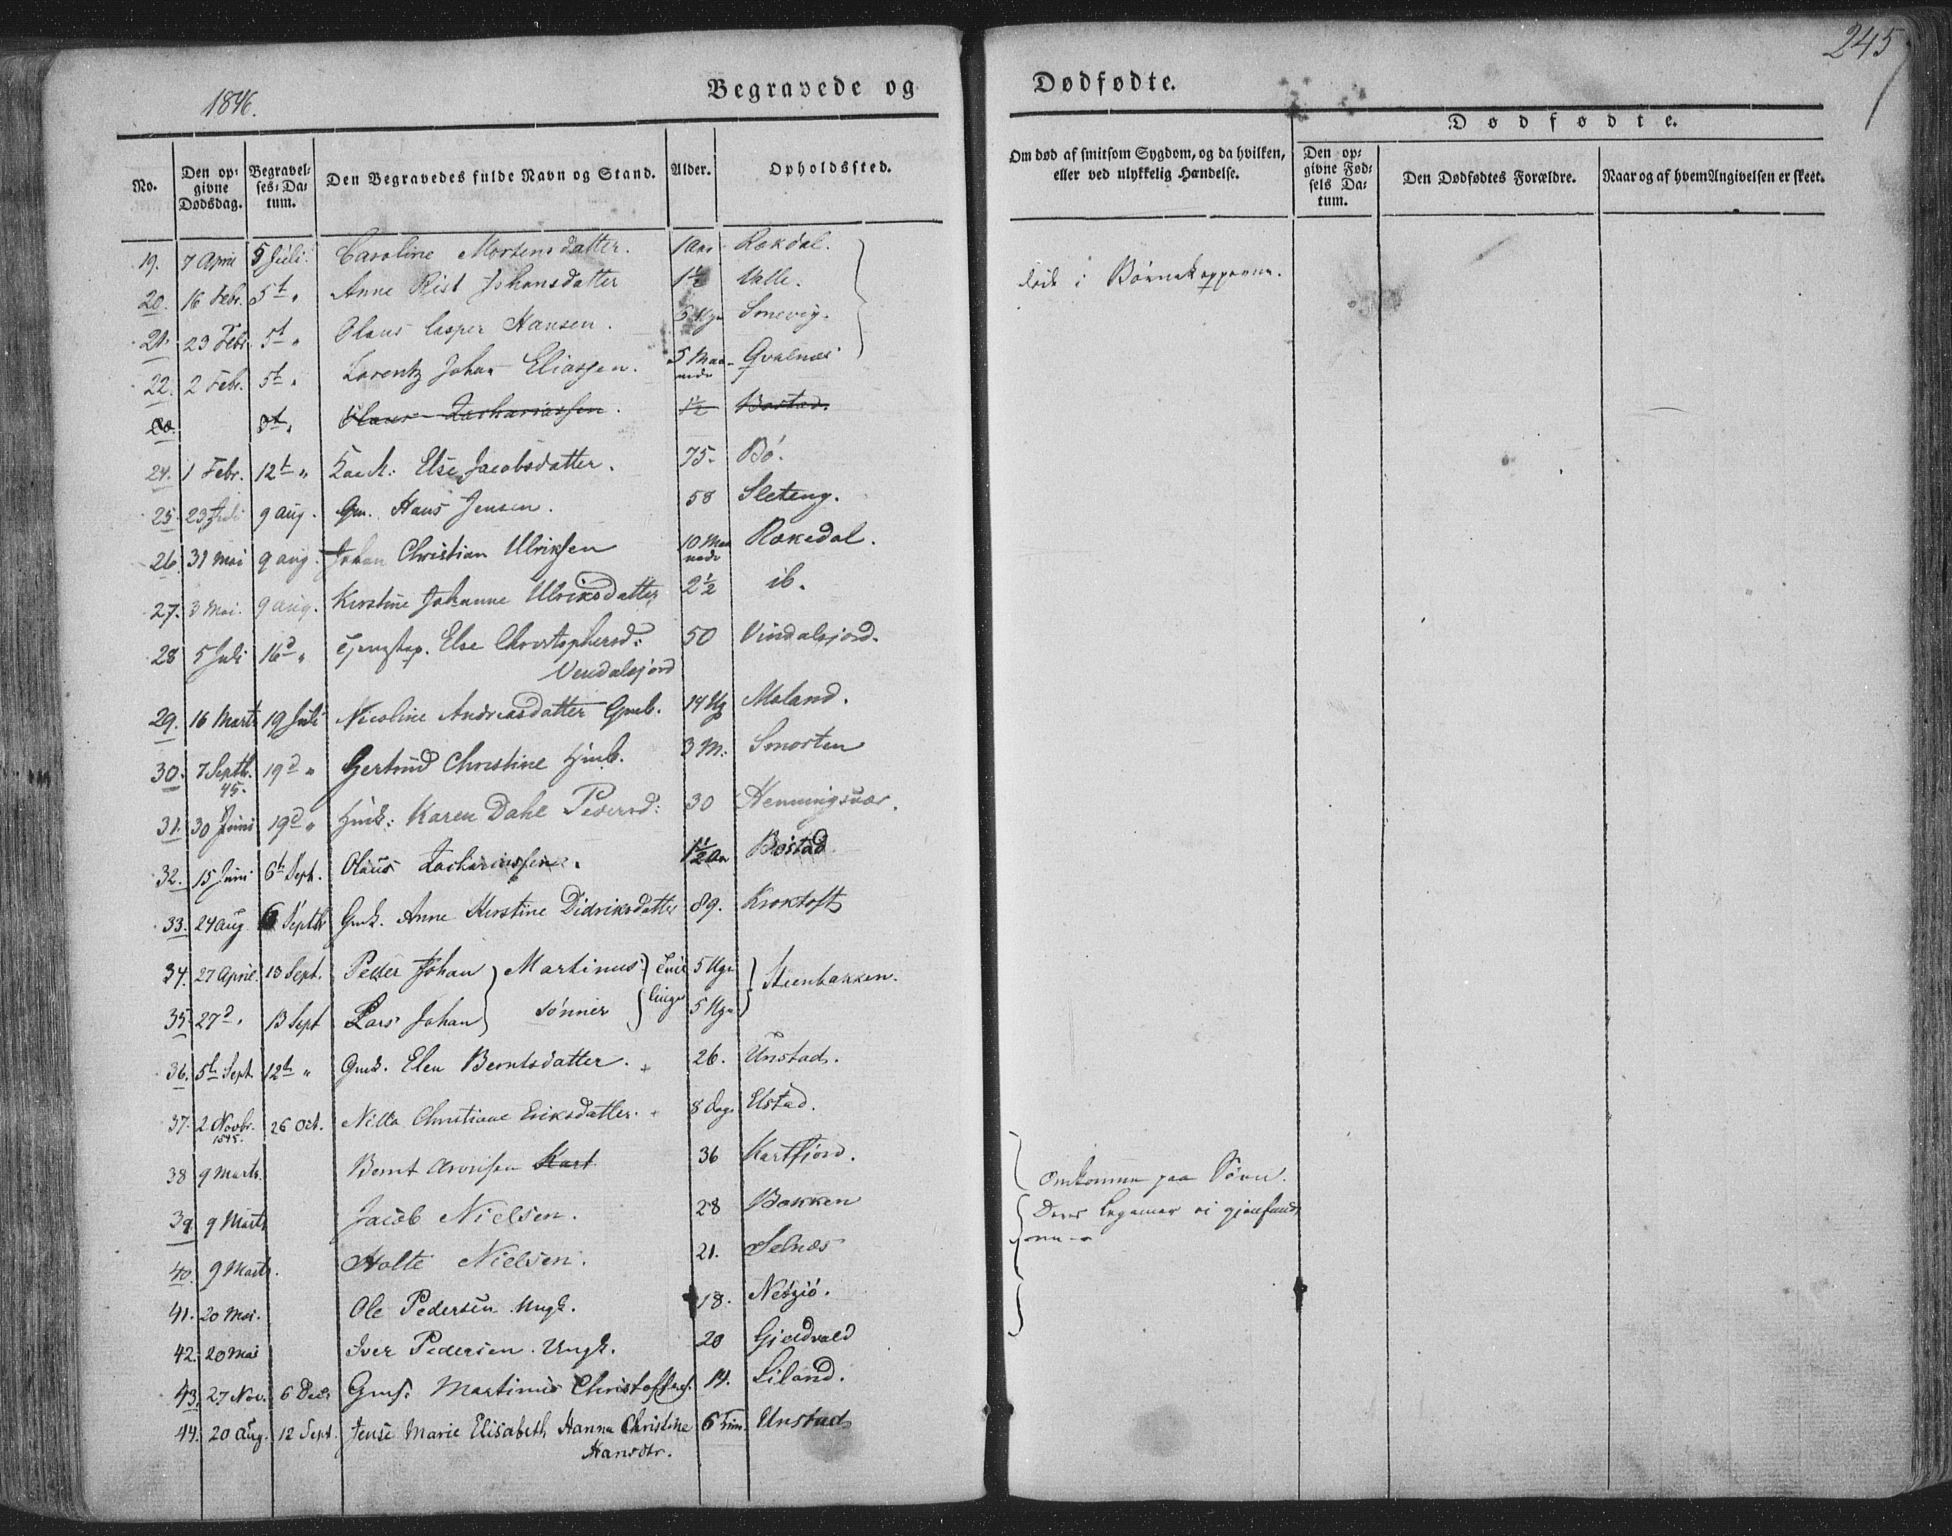 245
1846.
Begravede og Dødfødte.
No. Den opgivne Dødsdag. Begravelses-Datum. Den Begravedes fulde Navn og Stand. Alder. Opholdssted. Om død af smitsom Sygdom, og da hvilken, eller ved ulykkelig Hændelse. Dødfødte. Den opgivne Fødsels Datum. Den Dødfødtes Forældre. Naar og af hvem Angivelsen er skeet.
19. 7 April 5 Juli. Caroline Mortensdatter. 1 Aar Rækdal.
20. 16 Febr. 5t " Anne Rist Johansdatter 1½ Valle. døde i Børnekopperne.
21. 23 Febr. 5t " Olaus Casper Hansen. 5 Ugr Smevig.
22. 2 Febr. 5t " Lorentz Johan Eliassen. 5 Maaneder Qvalnæs
5t " Olaus Zachariassen. 1½ Bostad.
24. 1 Febr. 12t " Else Jacobsdatter. 75. Bø.
25. 23 Juli 9 Aug. Gm. Hans Jensen. 58 Sleteng.
26. 31 Mai 9 Aug. Johan Christian Ulriksen 10 Maaneder Rækedal.
27. 3 Mai. 9 Aug. Kirstine Johanne Ulriksdatter 2½ ib.
28 5 Juli 16d " Else Christophersd: 50 Vindalsjord.
Vendalsjord
29. 16 Marts 19 Juli Nicoline Andreasdatter Gmb. 14 Ug Moland.
30. 7 Septb. 45. 19d " Gertrud Christine Hmb. 3 M. Smorten
31. 30 Juni 19d " Hmk: Karen Dahl Pedersd: 30 Henningsvær.
32. 15 Juni 6t Sept. Olaus Zachariassen. 1½ Aar Bostad
33. 24 Aug 6 Septbr Gmk. Anne Kirstine Didriksdatter 89. Kroktoft
34. 27 April. 13 Sept. Peder Johan } Martinus { Tvil 5 Ugr } Steenbakken.
35. 27d " 13 Sept Lars Johan } sønner { linger 5 Ugr
36. 5t Sept. 12te " Gmk. Elen Berntsdatter. 26. Unstad.
37. 2 Novbr. 1845. 26 Oct. Nilla Christiane Eriksdatter. 8 Dage Ustad.
38 9 Marts. Bernt Aronsen Kart 36 Kartfjord. Omkomne paa Søen.
39. 9 Marts Jacob Nielsen. 28 Bakken Deres Legemer ei gjenfundne
40. 9 Marts. Holte Nielsen. 21. Selnæs
41. 20 Mai. Ole Pedersen Ungk. 18.
42. 20 Mai Iver Pedersen. Ungk. 20 Gjeldvold
43. 27 Nov. 6 Dec. Gms: Martinus Christoffers. 14. Liland.
44. 20 Aug. 12 Sept. Jense Marie Elisabeth Hanna Christine 6 Tim. Unstad
Hansdtr.